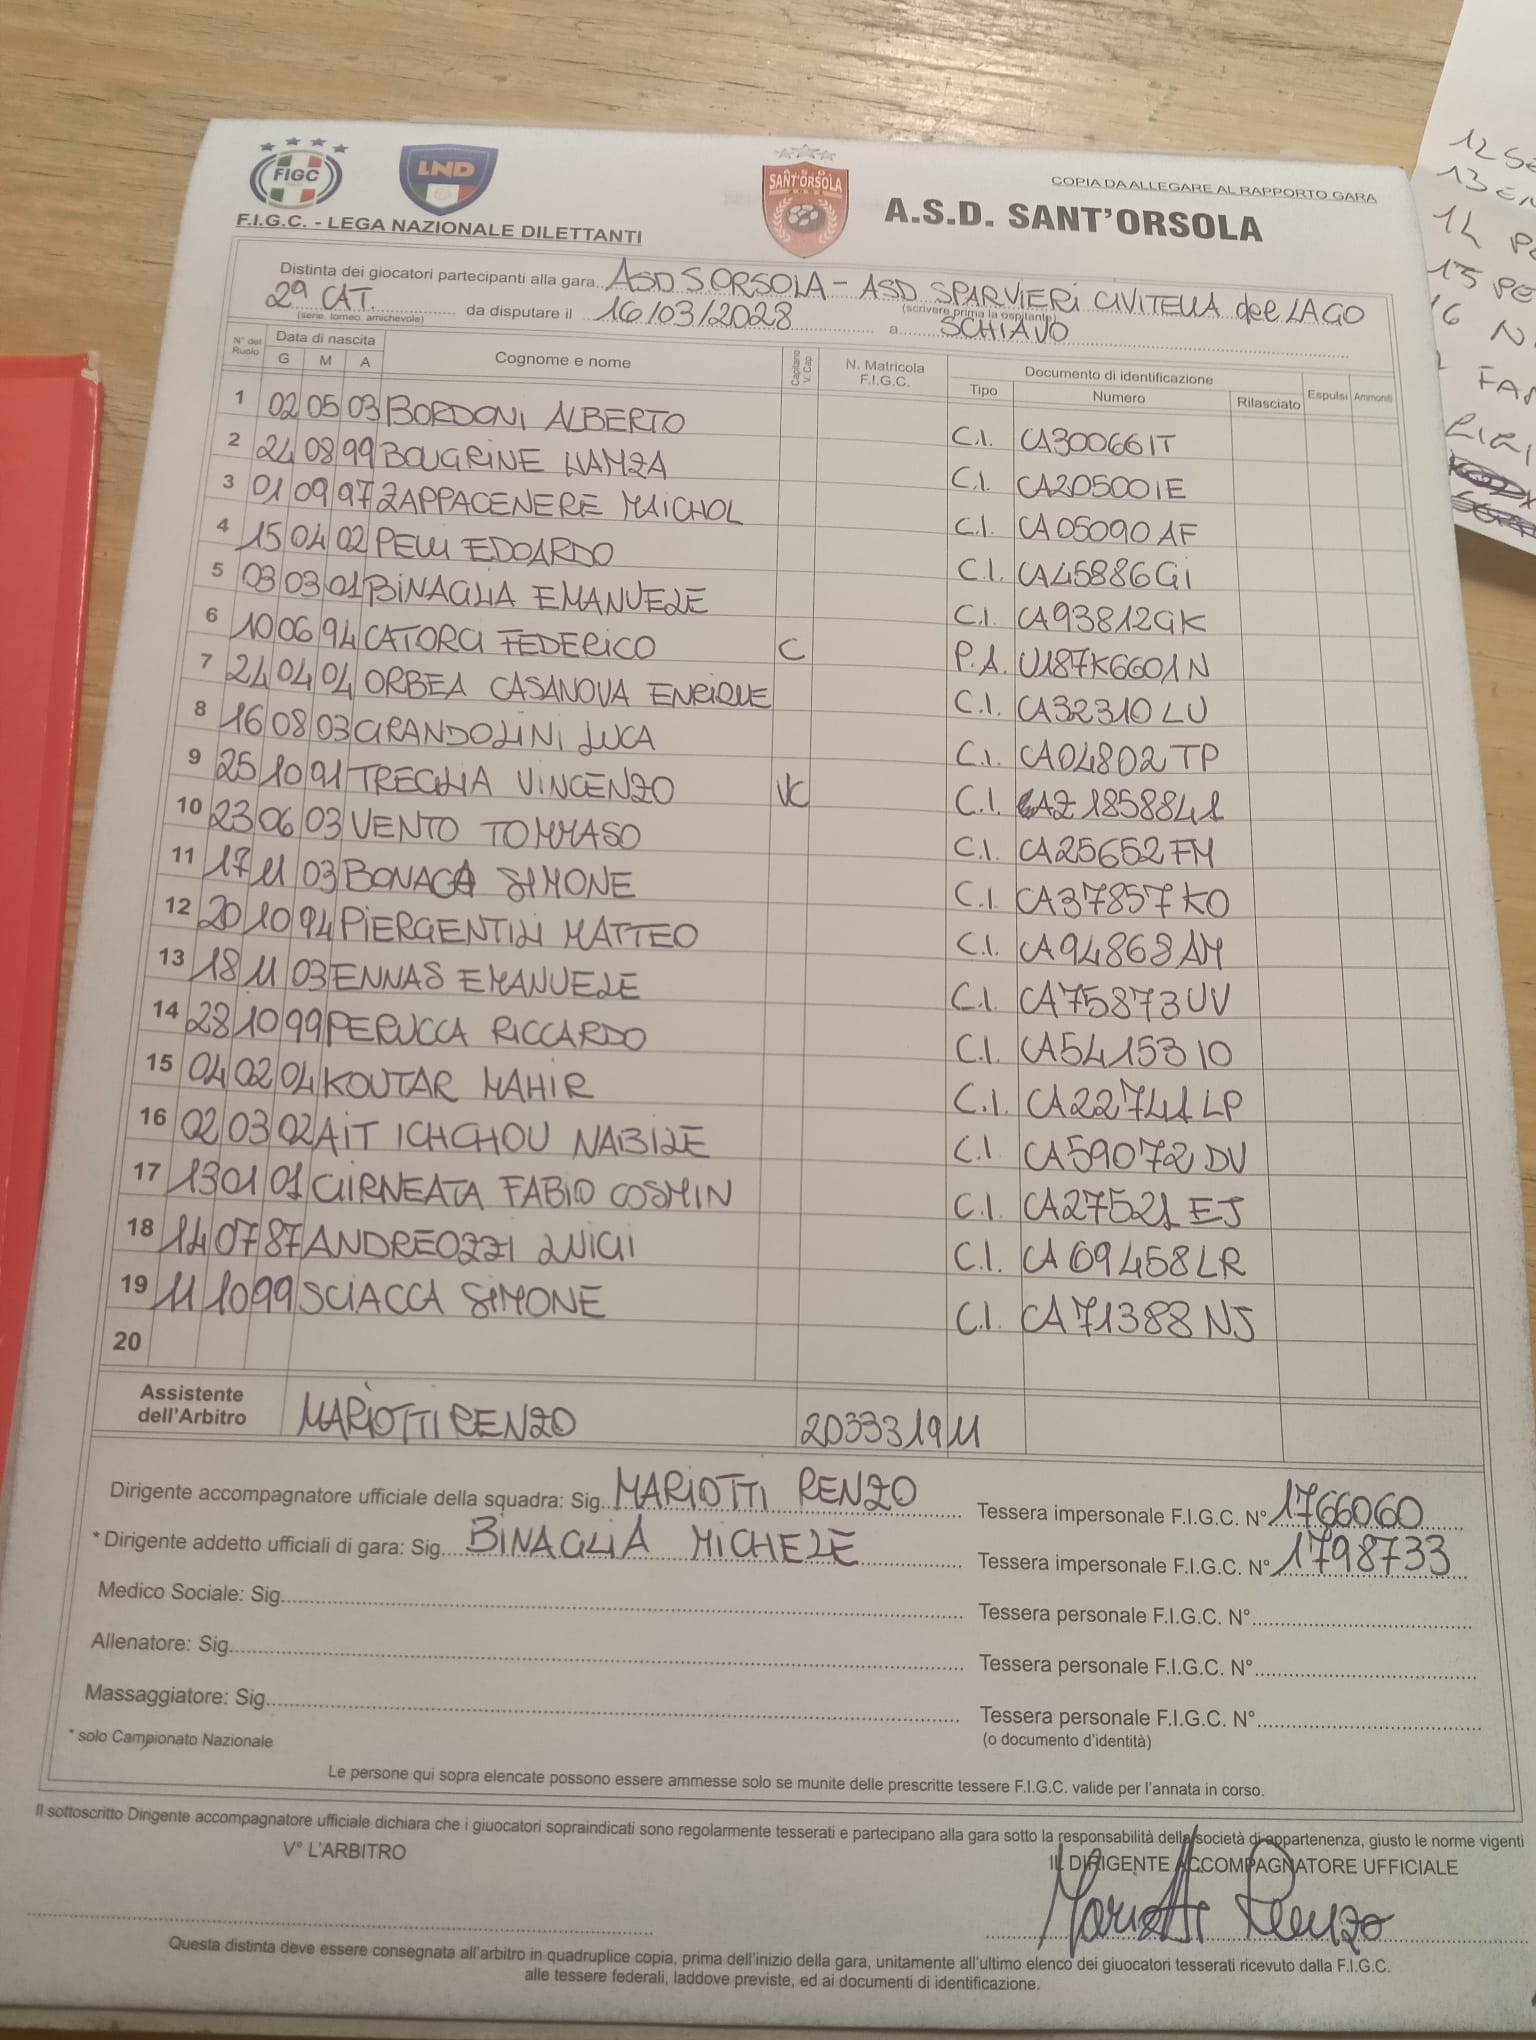 FIGC
LND
SANT'ORSOLA
COPIA DA ALLEGARE AL RAPPORTO GARA
F.I.G.C. - LEGA NAZIONALE DILETTANTI
A.S.D. SANT'ORSOLA
Distinta dei giocatori partecipanti alla gara ASD S ORSOLA - ASD SPARVIERI CIVITELLA del LAGO
(scrivere prima la ospitante)
2ª CAT. da disputare il 16/03/2028 a SCHIAVO
(serie, torneo, amichevole)
N° del Ruolo Data di nascita G M A Cognome e nome Capitano V. Cap. N. Matricola F.I.G.C. Documento di identificazione Tipo Numero Rilasciato Espulsi Ammoniti
1 02 05 03 BORDONI ALBERTO C.I. CA30066IT
2 24 08 99 BOUGRINE HAMZA C.I. CA20500IE
3 01 09 97 ZAPPACENERE MAICHOL C.I. CA05090AF
4 15 04 02 PELLI EDOARDO C.I. CA45886GI
5 03 03 01 BINAGLIA EMANUELE C.I. CA93812GK
6 10 06 94 CATORCI FEDERICO C P.A. U187K6601N
7 24 04 04 ORBEA CASANOVA ENRIQUE C.I. CA32310LU
8 16 08 03 GRANDOLINI LUCA C.I. CA04802TP
9 25 10 91 TREGLIA VINCENZO VC C.I. AZ1858841
10 23 06 03 VENTO TOMMASO C.I. CA25652FM
11 17 11 03 BONACA SIMONE C.I. CA37857KO
12 20 10 94 PIERGENTILI MATTEO C.I. CA94868AM
13 18 11 03 ENNAS EMANUELE C.I. CA75873UV
14 28 10 99 PERUCCA RICCARDO C.I. CA54153IO
15 04 02 04 KOUTAR MAHIR C.I. CA22741LP
16 02 03 02 AIT ICHCHOU NABILE C.I CA59072DV
17 13 01 01 CIRNEATA FABIO COSMIN C.I. CA27521EJ
18 14 07 87 ANDREOZZI LUIGI C.I. CA69458LR
19 11 10 99 SCIACCA SIMONE C.I. CA71388NJ
20
Assistente dell'Arbitro MARIOTTI RENZO 203331911
Dirigente accompagnatore ufficiale della squadra: Sig. MARIOTTI RENZO Tessera impersonale F.I.G.C. N° 1766060
* Dirigente addetto ufficiali di gara: Sig. BINAGLIA MICHELE Tessera impersonale F.I.G.C. N° 1798733
Medico Sociale: Sig. Tessera personale F.I.G.C. N°
Allenatore: Sig. Tessera personale F.I.G.C. N°
Massaggiatore: Sig. Tessera personale F.I.G.C. N°
* solo Campionato Nazionale (o documento d'identità)
Le persone qui sopra elencate possono essere ammesse solo se munite delle prescritte tessere F.I.G.C. valide per l'annata in corso.
Il sottoscritto Dirigente accompagnatore ufficiale dichiara che i giuocatori sopraindicati sono regolarmente tesserati e partecipano alla gara sotto la responsabilità della società di appartenenza, giusto le norme vigenti
V° L'ARBITRO IL DIRIGENTE ACCOMPAGNATORE UFFICIALE
Mariotti Renzo
Questa distinta deve essere consegnata all'arbitro in quadruplice copia, prima dell'inizio della gara, unitamente all'ultimo elenco dei giuocatori tesserati ricevuto dalla F.I.G.C.
alle tessere federali, laddove previste, ed ai documenti di identificazione.
12 SE
13 EN
14 PE
15 PE